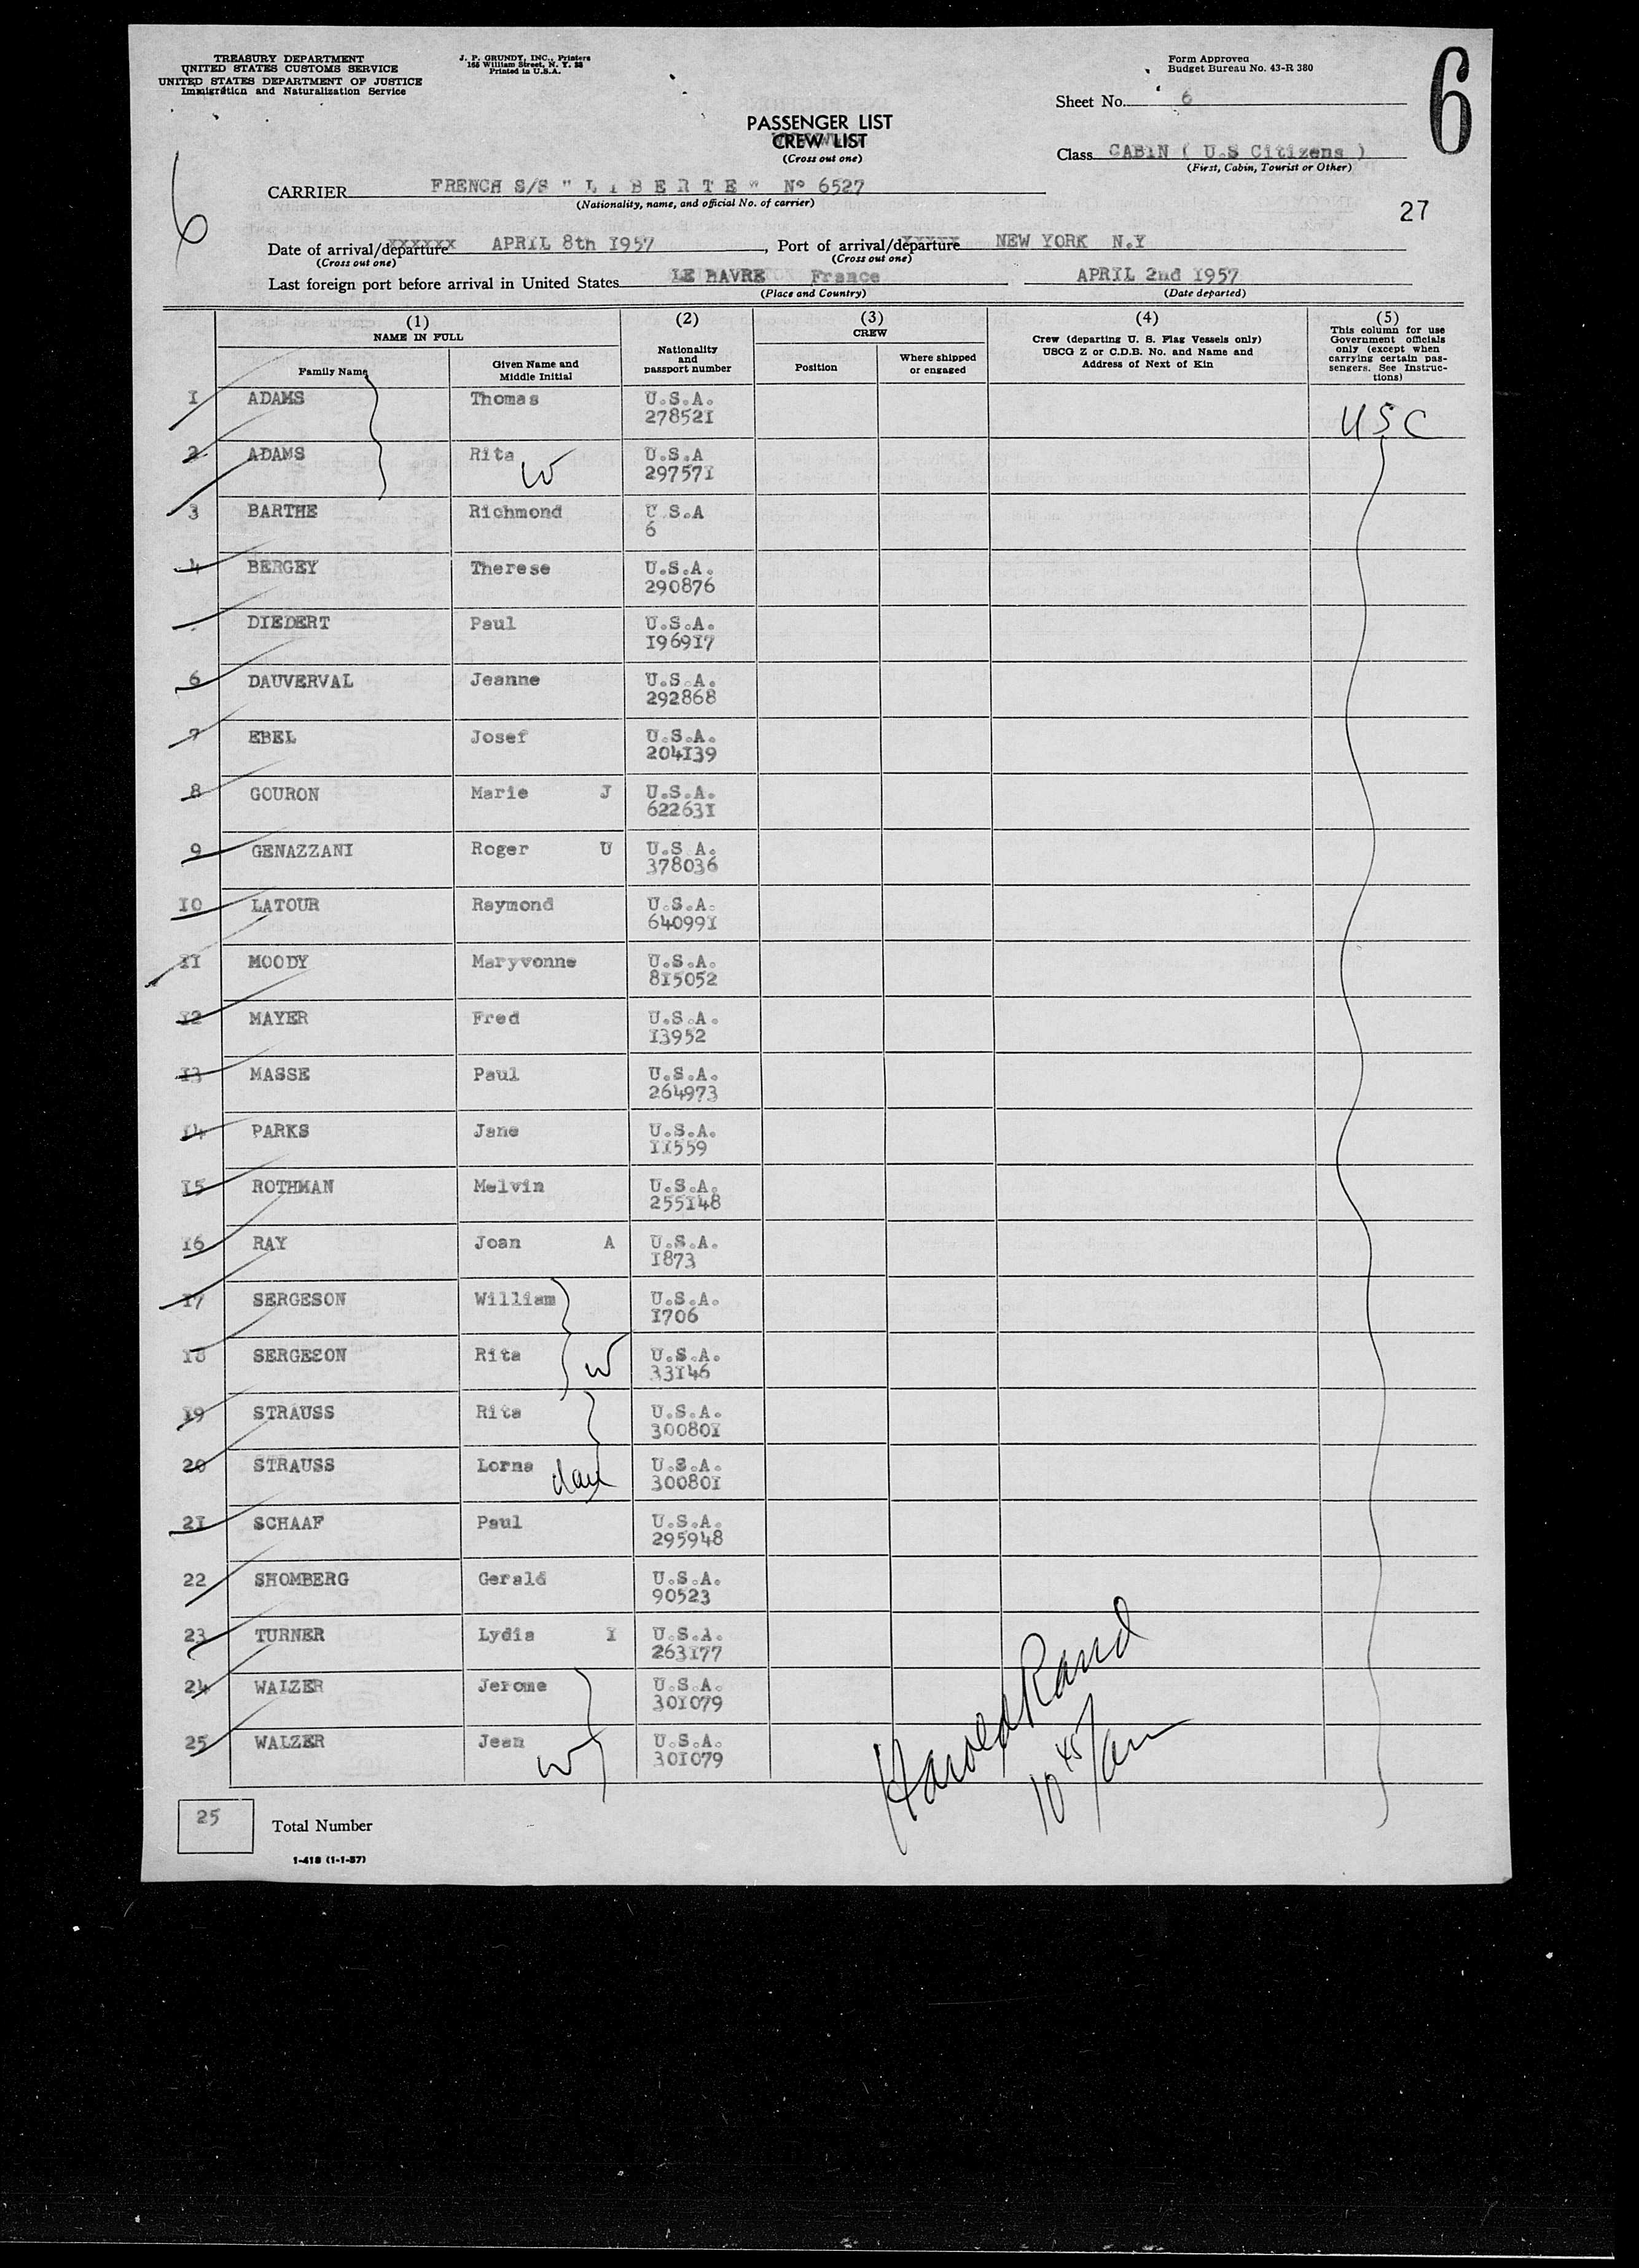 TREASURY DEPARTMENT
UNITED STATES CUSTOMS SERVICE
UNITED STATES DEPARTMENT OF JUSTICE
Immigration and Naturalization Service
J. P. GRUNDY, INC., Printers
165 William Street, N. Y. 38
Printed in U.S.A.
Form Approved
Budget Bureau No. 43-R 380
Sheet No. 6
6
PASSENGER LIST
CREW LIST
(Cross out one)
Class CABIN ( U.S Citizens )
(First, Cabin, Tourist or Other)
6
CARRIER FRENCH S/S " L I B E R T E " N° 6527
(Nationality, name, and official No. of carrier)
27
Date of arrival/departure xxxxxx APRIL 8th 1957, Port of arrival/departure xxxxx NEW YORK N.Y
(Cross out one) (Cross out one)
Last foreign port before arrival in United States LE HAVRE France APRIL 2nd 1957
(Place and Country) (Date departed)
(1) NAME IN FULL
Family Name
Given Name and Middle Initial
(2) Nationality and passport number
(3) CREW
Position
Where shipped or engaged
(4) Crew (departing U. S. Flag Vessels only) USCG Z or C.D.B. No. and Name and Address of Next of Kin
(5) This column for use Government officials only (except when carrying certain passengers. See Instructions)
1 ADAMS Thomas U.S.A. 278521 USC
2 ADAMS Rita W U.S.A 297571
3 BARTHE Richmond U.S.A 6
4 BERGEY Therese U.S.A. 290876
DIEDERT Paul U.S.A. 196917
6 DAUVERVAL Jeanne U.S.A. 292868
7 EBEL Josef U.S.A. 204139
8 GOURON Marie J U.S.A. 622631
9 GENAZZANI Roger U U.S A. 378036
10 LATOUR Raymond U.S.A. 640991
11 MOODY Maryvonne U.S.A. 815052
12 MAYER Fred U.S.A. 13952
13 MASSE Paul U.S.A. 264973
14 PARKS Jane U.S.A. 11559
15 ROTHMAN Melvin U.S.A. 255148
16 RAY Joan A U.S.A. 1873
17 SERGESON William U.S.A. 1706
18 SERGESON Rita W U.S.A. 33146
19 STRAUSS Rita U.S.A. 300801
20 STRAUSS Lorna dau U.S.A. 300801
21 SCHAAF Paul U.S.A. 295948
22 SHOMBERG Gerald U.S.A. 90523
23 TURNER Lydia I U.S.A. 263177
24 WALZER Jerome U.S.A. 301079
25 WALZER Jean W U.S.A. 301079
Harold Rand
10 45/am
25 Total Number
I-418 (1-1-57)